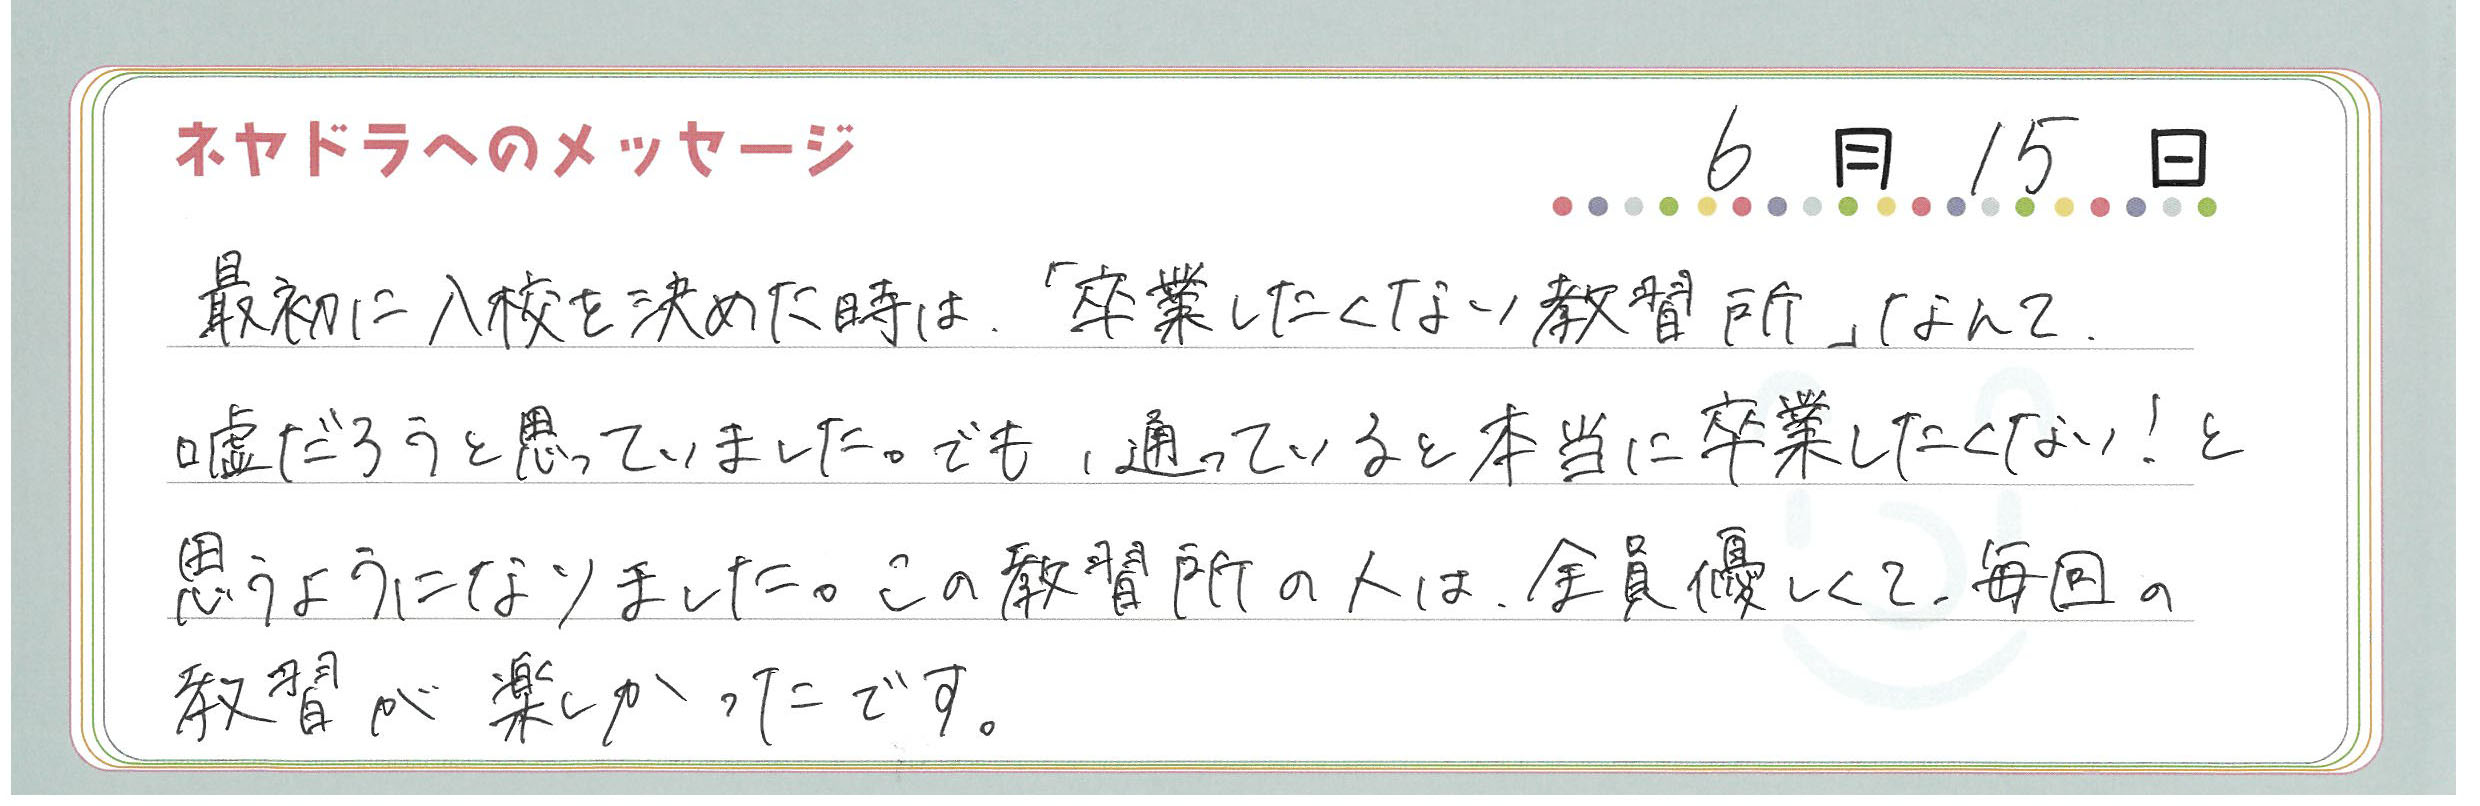 ネヤドラへのメッセージ
6月15日
最初に入校を決めた時は、「卒業したくない教習所」なんて、
嘘だろうと思っていました。でも、通っていると本当に卒業したくない!と
思うようになりました。この教習所の人は、全員優しくて、毎回の
教習が楽しかったです。